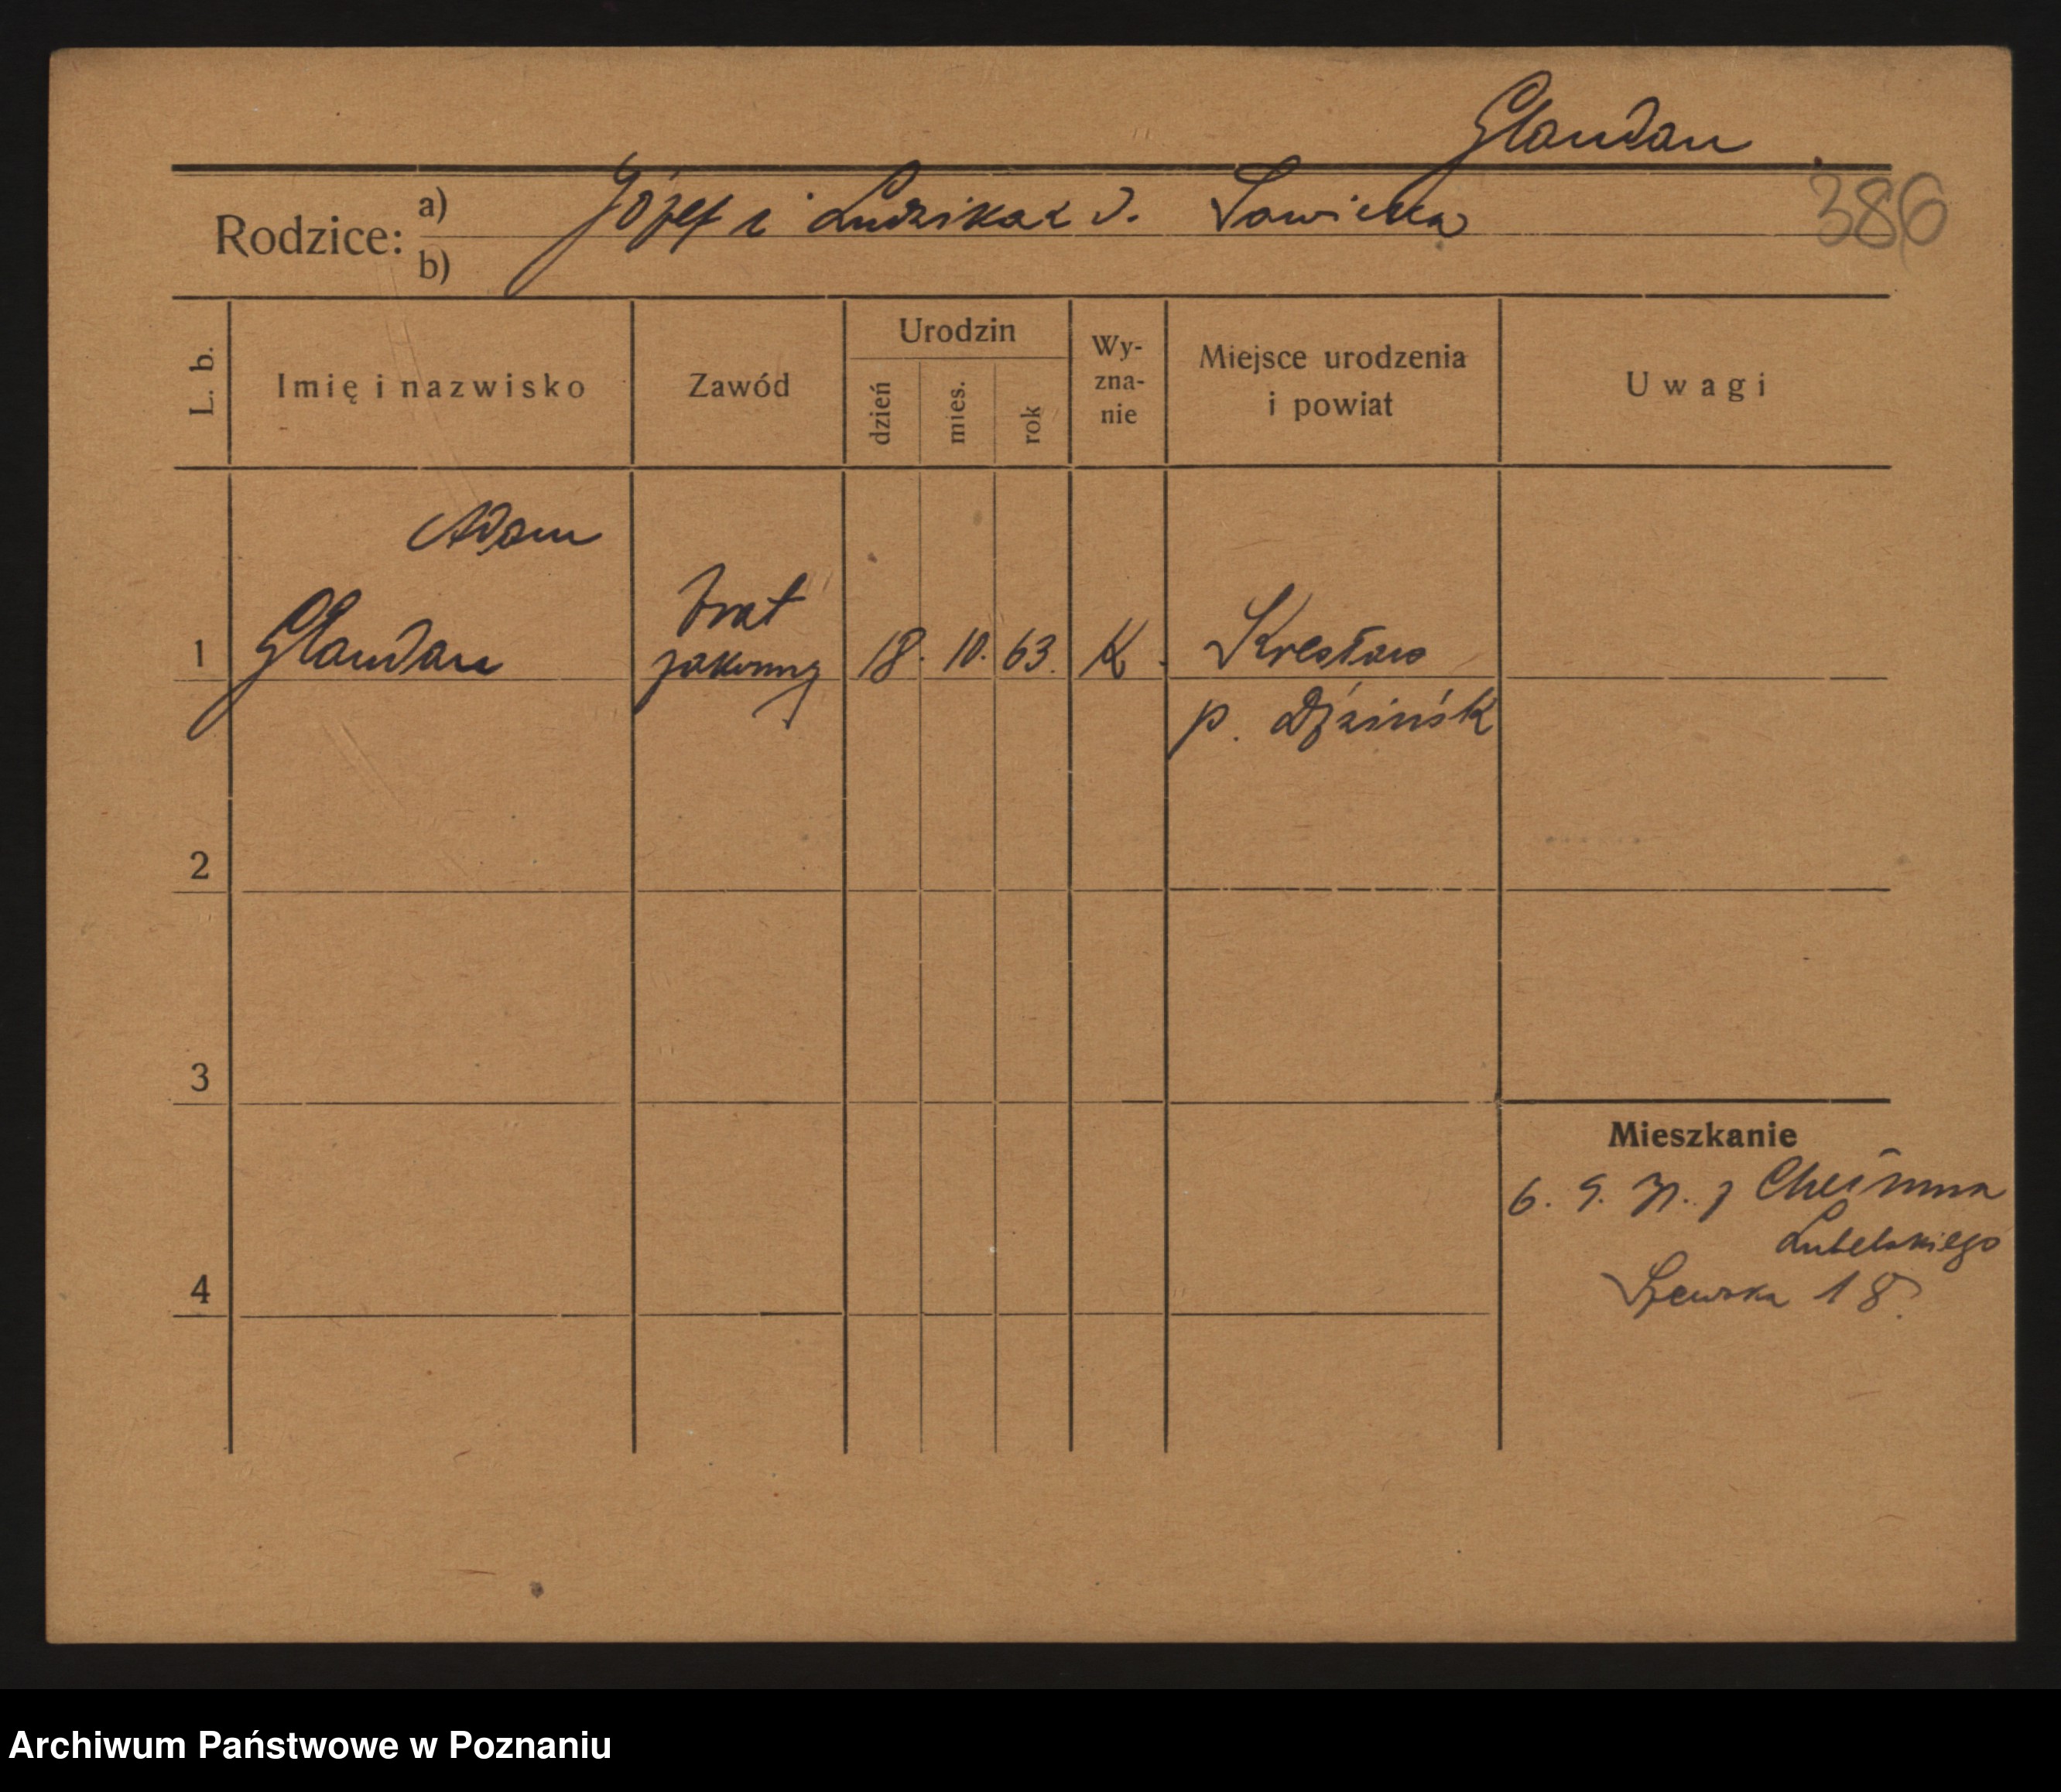 Glandan
386
Rodzice: a) Józef i Ludwika z d. Sawicka
b)
L. b. Imię i nazwisko Zawód Urodzin dzień mies. rok Wy-zna-nie Miejsce urodzenia i powiat Uwagi
Adam
brat
1 Glandan zakonny 18. 10. 63. K. Kresław
p. Dźwińsk
2
3
Mieszkanie
6. 9. z Chełmna
Lubelskiego
4 Szewska 18.
Archiwum Państwowe w Poznaniu